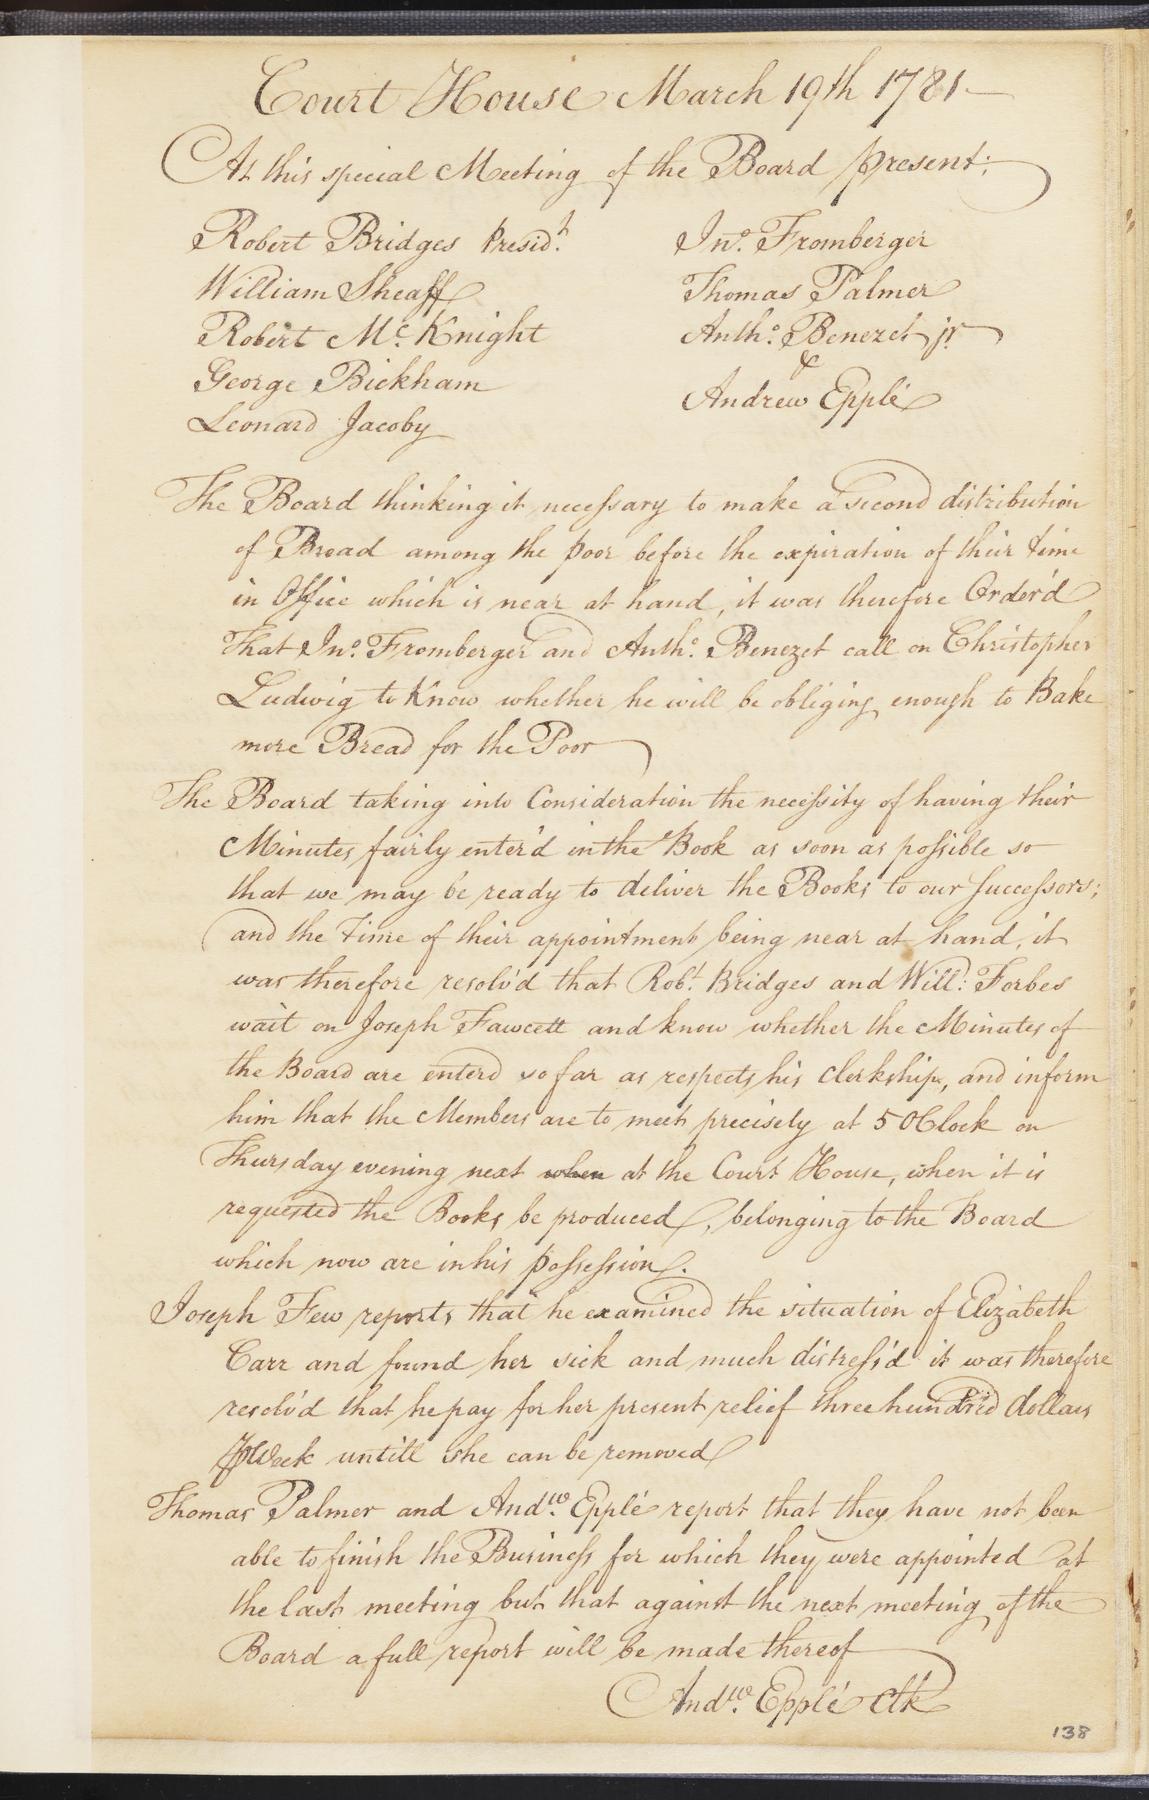 Court House March 19th 1781
At this special Meeting of the Board present;
Robert Bridges Presidt.
William Sheaff
Robert Mc. Knight
George Bickham
Leonard Jacoby
Jno. Fromberger
Thomas Palmer
Antho. Benezet jr.
&
Andrew Epplé
The Board thinking it necessary to make a second distribution
of Bread among the poor before the expiration of their time
in Office which is near at hand, it was therefore Order'd
That Jno. Fromberger and Antho. Benezet call on Christopher
Ludwig to Know whether he will be obliging enough to Bake
more Bread for the Poor
The Board taking into Consideration the necessity of having their
Minutes fairly enter'd in the Book as soon as possible so
that we may be ready to deliver the Books to our Successors;
and the Time of their appointment being near at hand, it
was therefore resolv'd that Robt. Bridges and Will: Forbes
wait on Joseph Fawcett and know whether the Minutes of
the Board are enterd so far as respects his Clerkship, and inform
him that the Members are to meet precisely at 5 OClock on
Thursday evening next when at the Court House, when it is
requested the Books be produced, belonging to the Board
which now are in his possession.
Joseph Few reports that he examined the situation of Elizabeth
Carr and found her sick and much distress'd it was therefore
resolv'd that he pay for her present relief three hundred dollars
⅌ Week untill she can be removed
Thomas Palmer and Andw. Epplé report that they have not been
able to finish the Business for which they were appointed at
the last meeting but that against the next meeting of the
Board a full report will be made thereof
Andw. Epplé Clk
138